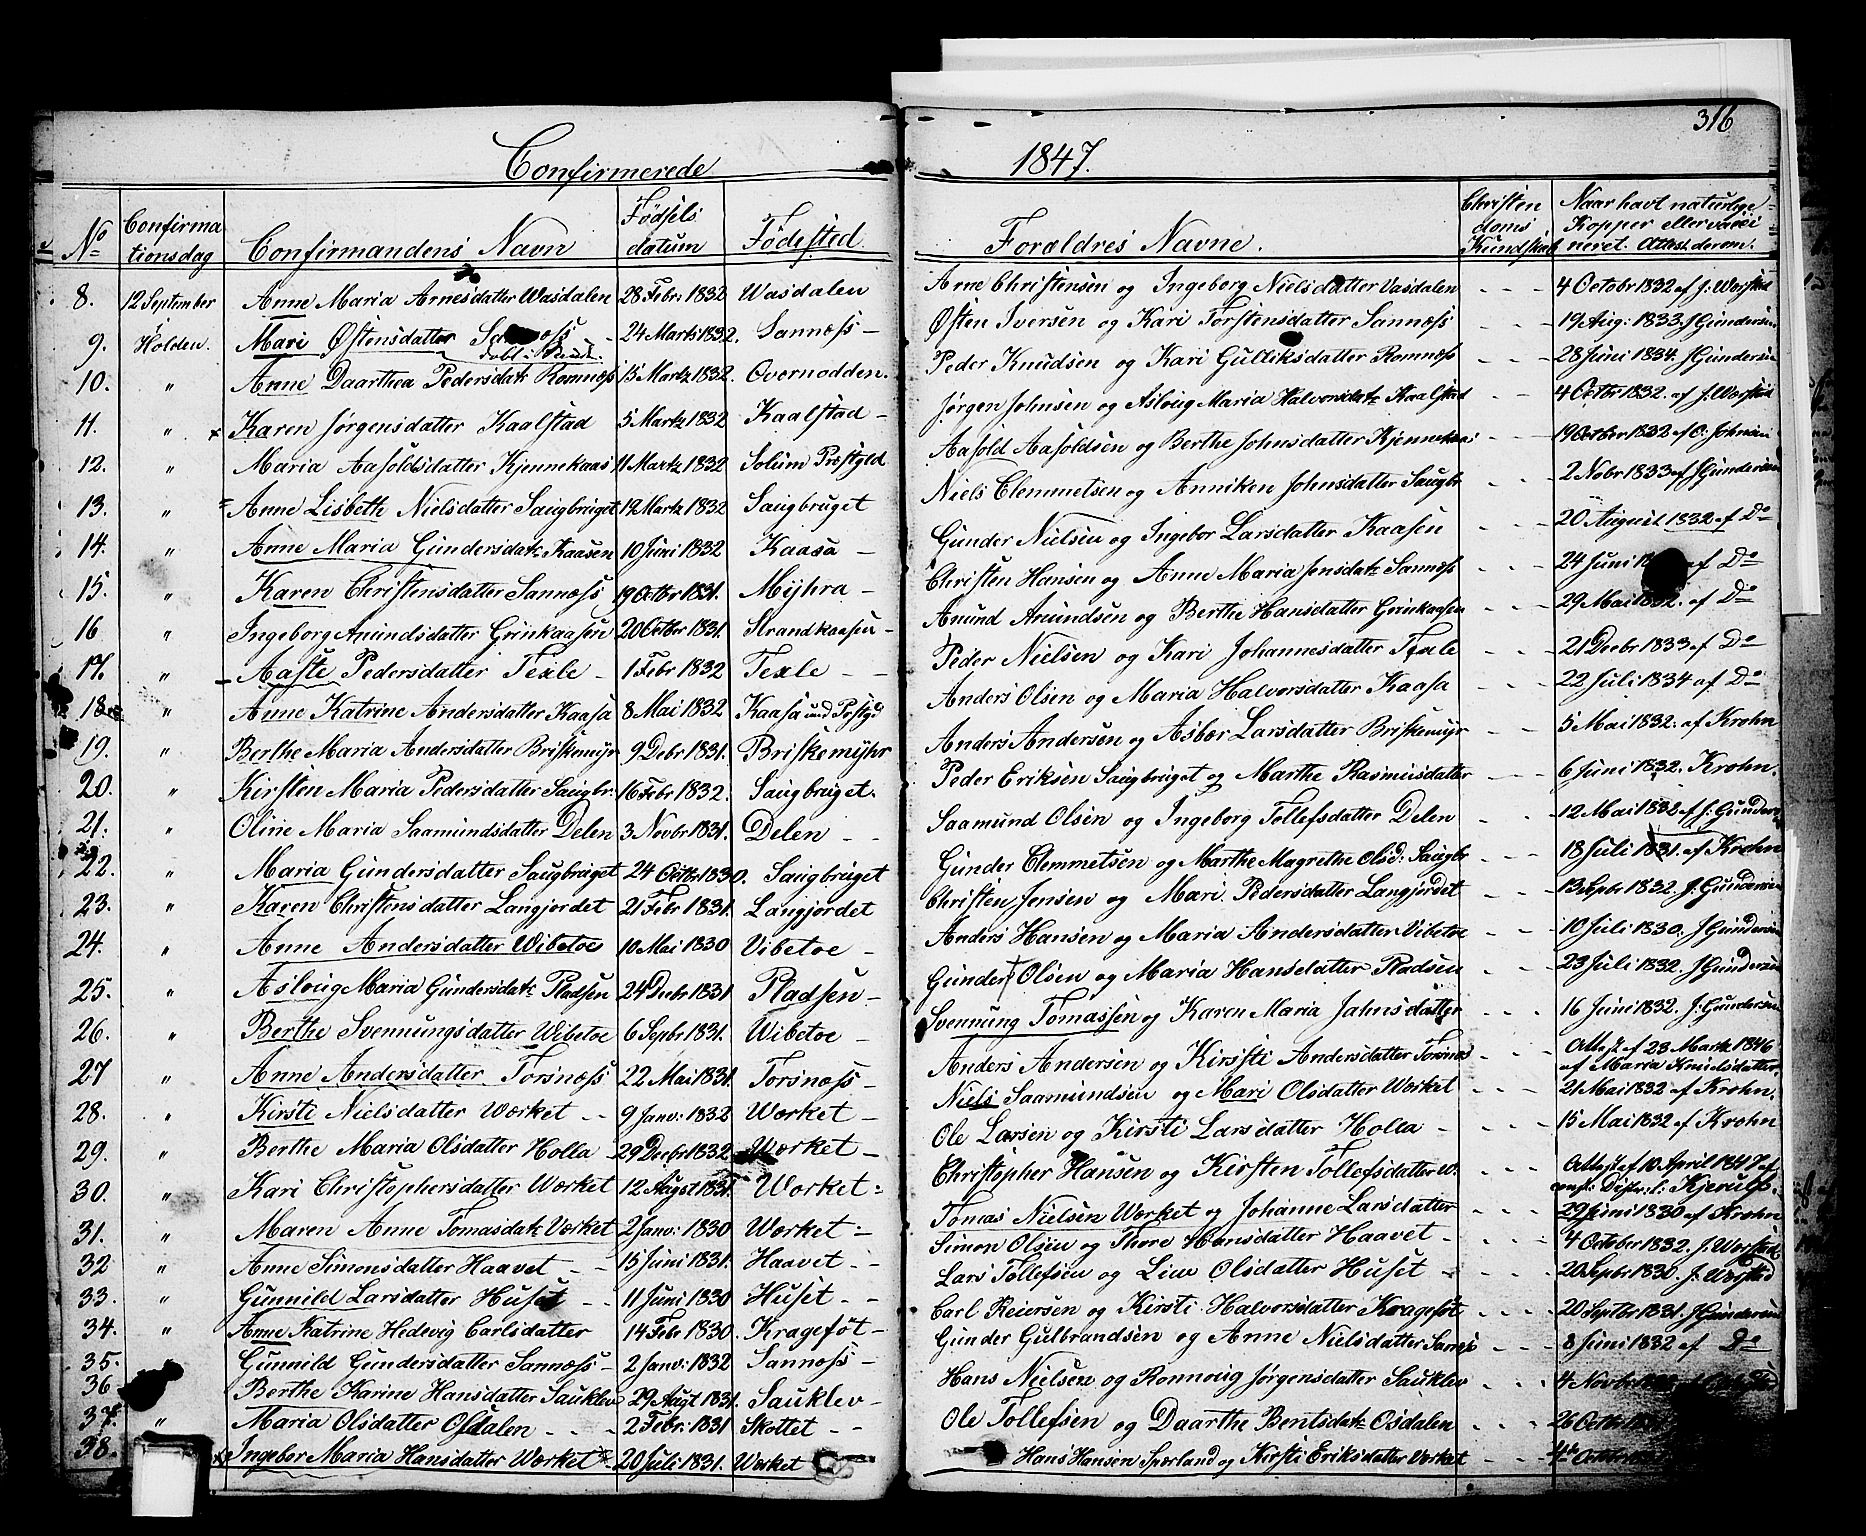 316
Confirmerede
1847.
No
Confirma
tionsdag
Confirmandens Navn
Fødsels
datum
Fødested
Forældres Navne.
Christen
doms
Kundskab
Naar havt naturlige
Kopper eller vacci
neret. Attest derom.
8. 12 September Anne Maria Arnesdatter Wasdalen 28 Febr: 1832 Wasdalen Arne Christensen og Ingeborg Nielsdatter Vasdalen - - - 4 Octobr 1832 af J: Worstad
9. Holden. Mari Østensdatter 24 Marts 1832. Sannæss - Østen Iversen og Kari Torstensdatter Sannæss - - - 19 Aug: 1833. J Gundersen
10. " Anne Daarthea Pedersdatr Romnæss 15 Martz 1832. Overnodden. Peder Knudsen og Kari Gulliksdatter Romnæss - - - 28 Juni 1834. J Gundersen
11. " Karen Jørgensdatter Kaalstad 5 Martz 1832 Kaalstad - Jørgen Johnsen og Asloug Maria Halvorsdatr Kaalstad - - - 4 Octbr 1832. af J. Worstad
12. " Maria Aasoldsdatter Kjennekaas 11 Martz 1832 Solum Præstgld Aasold Aasoldsen og Berthe Johnsdatter Kjennekaas - - - 19 Octbr 1832 af O. Johnsen
13. " Anne Lisbeth Nielsdatter Saugbruget 12 Martz 1832 Saugbruget Niels Clemmetsen og Anniken Johnsdatter Saugbr - - - 2 Nobr 1833 af J Gundersen
14. " Anne Maria Gundersdatr Kaasen 10 Juni 1832 Kaasa - Gunder Nielsen og Ingebor Larsdatter Kaasen - - - 20 August 1832 af Do
15. " Karen Christensdatter Sannæss 19 Octbr 1831. Myhra - Christen Hansen og Anne Maria Jensdatr Sannæss - - - 24 Juni af Do
16 " Ingeborg Anundsdatter Grinkaasen 20 Octbr 1831. Strandkaasen - Anund Anundsen og Berthe Hansdatter Grinkaasen - - - 29 Mai 1832. af Do
17. " Aaste Pedersdatter Texle - 1 Febr 1832 Texle - - Peder Nielsen og Kari Johannesdatter Texle - - - 21 Decbr 1833 af Do
18 " Anne Katrine Andersdatter Kaasa 8 Mai 1832 Kaasa Anders Olsen og Maria Halvorsdatter Kaasa - - - 22 Juli 1834 af Do
19. " Berthe Maria Andersdatter Briskemyr 9 Debr 1831. Briskemyhr Anders Andersen og Asbor Larsdatter Briskemyr - - - 5 Mai 1832. af Krohn
20. " Kirsten Maria Pedersdatter Saugbr. 16 Febr 1832. Saugbruget. Peder Eriksen Saugbruget og Marthe Rasmusdatter - - - 6 Juni 1832. Krohn.
21. " Oline Maria Saamundsdatter Delen 3 Novbr 1831. Delen - - Saamund Olsen og Ingeborg Tollefsdatter Delen - - - 12 Mai 1832 af J: Gunders
22. " Maria Gundersdatter Saugbruget 24 Octbr 1830. Saugbruget Gunder Clemmetsen og Marthe Magrethe Olsd: Saugbr - - - 18 Juli 1831. af Krohn
23. " Karen Christensdatter Langjordet 21 Febr 1831. Langjordet Christen Jensen og Mari Pedersdatter Langjordet - - - 13 Sepbr 1832. J. Gundersen
24. " Anne Andersdatter Wibetoe 10 Mai 1830 Vibetoe - Anders Hansen og Maria Andersdatter Vibetoe - - - 10 Juli 1830. J Gundersen
25. " Asloug Maria Gundersdatr Pladsen 24 Decbr 1831 Pladsen - Gunder Olsen og Maria Hansdatter Pladsen - - - 23 Juli 1832. J Gundersen
26. " Berthe Svennungsdatter Wibetoe 6 Sepbr 1831. Wibetoe - Svennung Tomassen og Karen Maria Jahnsdatter - - - 16 Juni 1832. J: Gundersen
27 " Anne Andersdatter Torsnæss 22 Mai 1831. Torsnæss - Anders Andersen og Kirsti Andersdatter Torsnæs - - - Attest af 23 Martz 1846
af Maria Knudsdatter.
28. " Kirsti Nielsdatter Wærket - - 9 Janv: 1832 Wærket - Niels Saamundsen og Mari Olsdatter Wærket - - - 21 Mai 1832 af Krohn.
29. " Berthe Maria Olsdatter Holla - 29 Decbr 1832 Wærket - Ole Larsen og Kirsti Larsdatter Holla - - - - 15 Mai 1832 af Krohn
30. " Kari Christophersdatter Wærket 12 Augst 1831. Wærket - Christopher Hansen og Kirsten Tollefsdatter W. - - - Attest af 10 April 1847 af
const: Distr: L: Kjerulf.
31. " Maren Anne Tomasdatr Værket 2 Janv: 1830 Wærket - Tomas Nielsen Wærket og Johanne Larsdatter - - - 29 Juni 1830 af Krohn
32 " Anne Simonsdatter Haavet - - 15 Juni 1831. Haavet - - Simon Olsen og Thore Hansdatter Haavet - - - - 4 October 1832. J. Worstad
33. " Gunnild Larsdatter Huset - - 11 Juni 1830 Huset - - Lars Tollefsen og Live Olsdatter Huset - - - - 20 Sepbr 1830. J. Worstad
34. " Anne Katrine Hedevig Carlsdatter 14 Febr 1830. Kragefot - Carl Reiersen og Kirsti Halvorsdatter Kragefot - - - 20 Septbr 1831. J Gundersen
35. " Gunnild Gundersdatter Sannæss - 2 Janv: 1832 Sannæss - Gunder Gulbrandsen og Anne Nielsdatter Sannæss - - - 8 Juni 1832 af Do
36 Berthe Karine Hansdatter Sauklev 29 Augt 1831. Sauklev - Hans Nielsen og Romnoug Jørgensdatter Sauklev - - - 4 Novbr
37. " Maria Olsdatter Osdalen - - - 2 Febr: 1831 Skottet - - Ole Tollefsen og Daarthe Bentsdatr Osdalen - - - 26 Octbr
38. Ingebor Maria Hansdatter Wærket 20 Juli 1831. Wærket Hans Hansen Spærland og Kirsti Eriksdatter Værket - - -